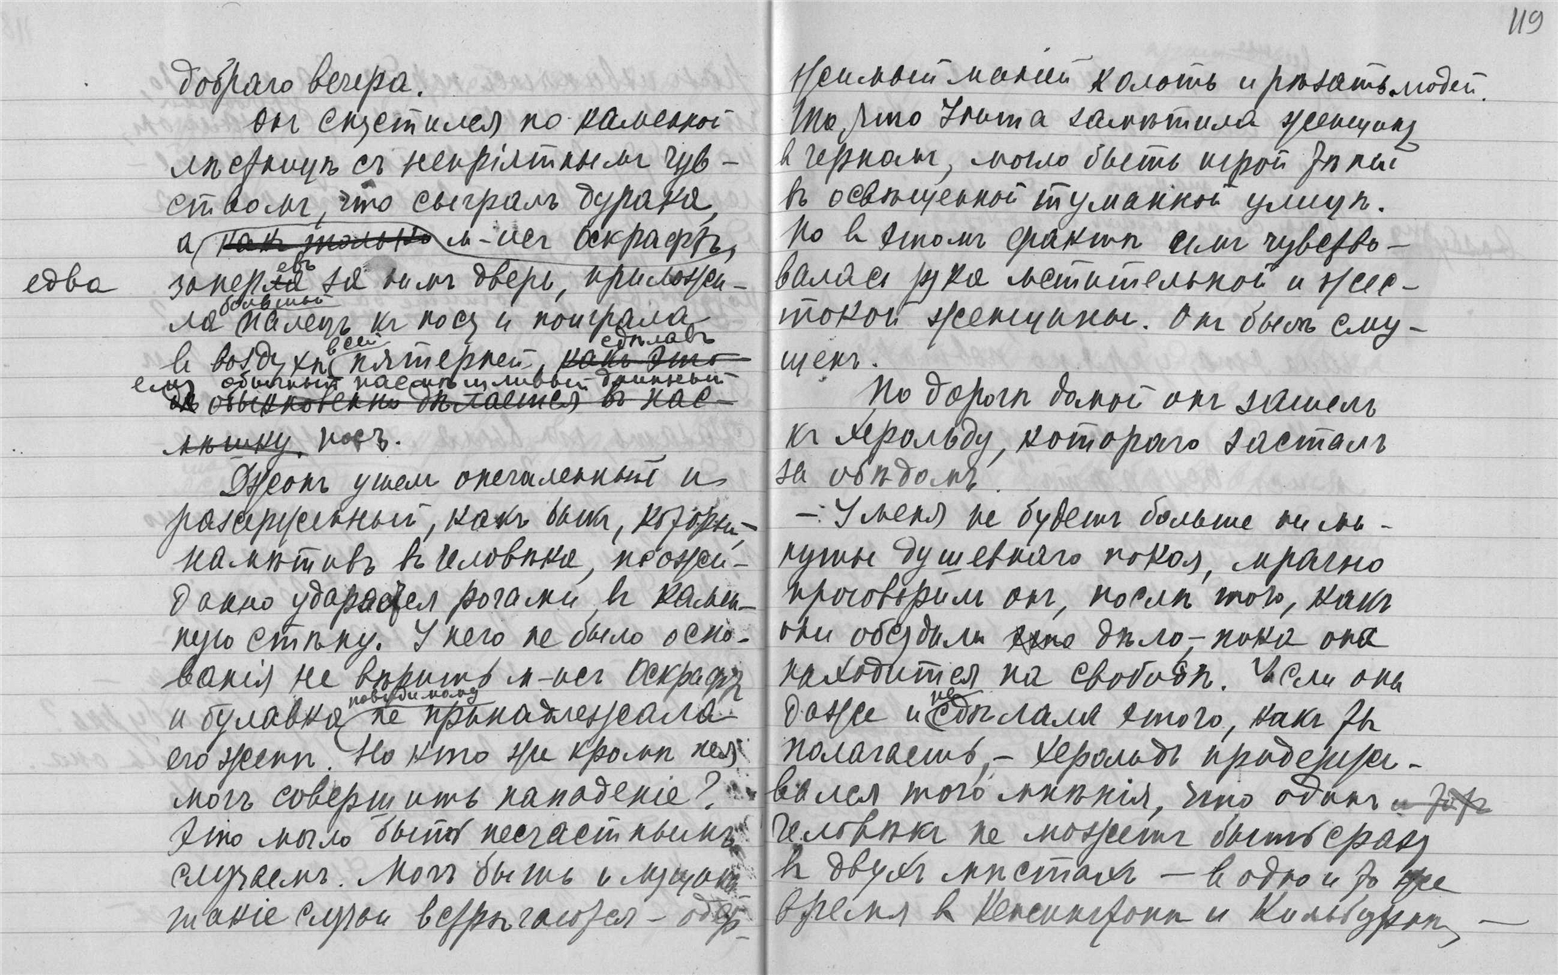 119
добраго вечера.
Онъ спустился по каменной
лѣстницѣ съ непріятнымъ чув-
ствомъ, что сыгралъ дурака,
а какъ только м-исъ Аскрафтъ,
едва
заперла евъ за нимъ дверь, приложи-
ла большой палецъ къ носу и поиграла
въ воздухѣ всей пятерней, какъ это сдѣлавъ
ему обычный насмѣшливый длинный
обыкновенно дѣлается въ нас-
мѣшку. носъ.
Джонъ ушелъ опечаленный и
разсерженный, какъ быкъ, который,
намѣтивъ въ человѣка, неожи-
данно ударился рогами въ камен-
ную стѣну. У него не было осно-
ванія не вѣрить м-исъ Аскрафтъ
и булавка повидимому не принадлежала
его женѣ. Но кто же кромѣ нея
могъ совершить нападеніе?
Это могло быть несчастнымъ
случаемъ. Могъ быть и мущина
такіе случаи встрѣчаются – одер-
жимый маніей колоть и рѣзать людей.
То, что Унита замѣтила женщину
въ черномъ, могло быть игрой тѣней
въ освѣщенной туманной улицѣ.
Но въ этомъ фактѣ имъ чувство-
валась рука мстительной и жес-
токой женщины. Онъ былъ сму-
щенъ.
По дорогѣ домой онъ зашелъ
къ Херольду, котораго засталъ
за обѣдомъ.
– У меня не будетъ больше ни ми-
нуты душевнаго покоя, мрачно
проговорилъ онъ, послѣ того, какъ
они обсудили это дѣло, – пока она
находится на свободѣ. Если она
даже и не сдѣлала этого, какъ ты
полагаешь, – Херольдъ придержи-
вался того мнѣнія, что одинъ и тотъ
человѣкъ не можетъ быть сразу
въ двухъ мѣстахъ – въ одно и то же
время въ Кенсингтонѣ и Кильбурнѣ, –